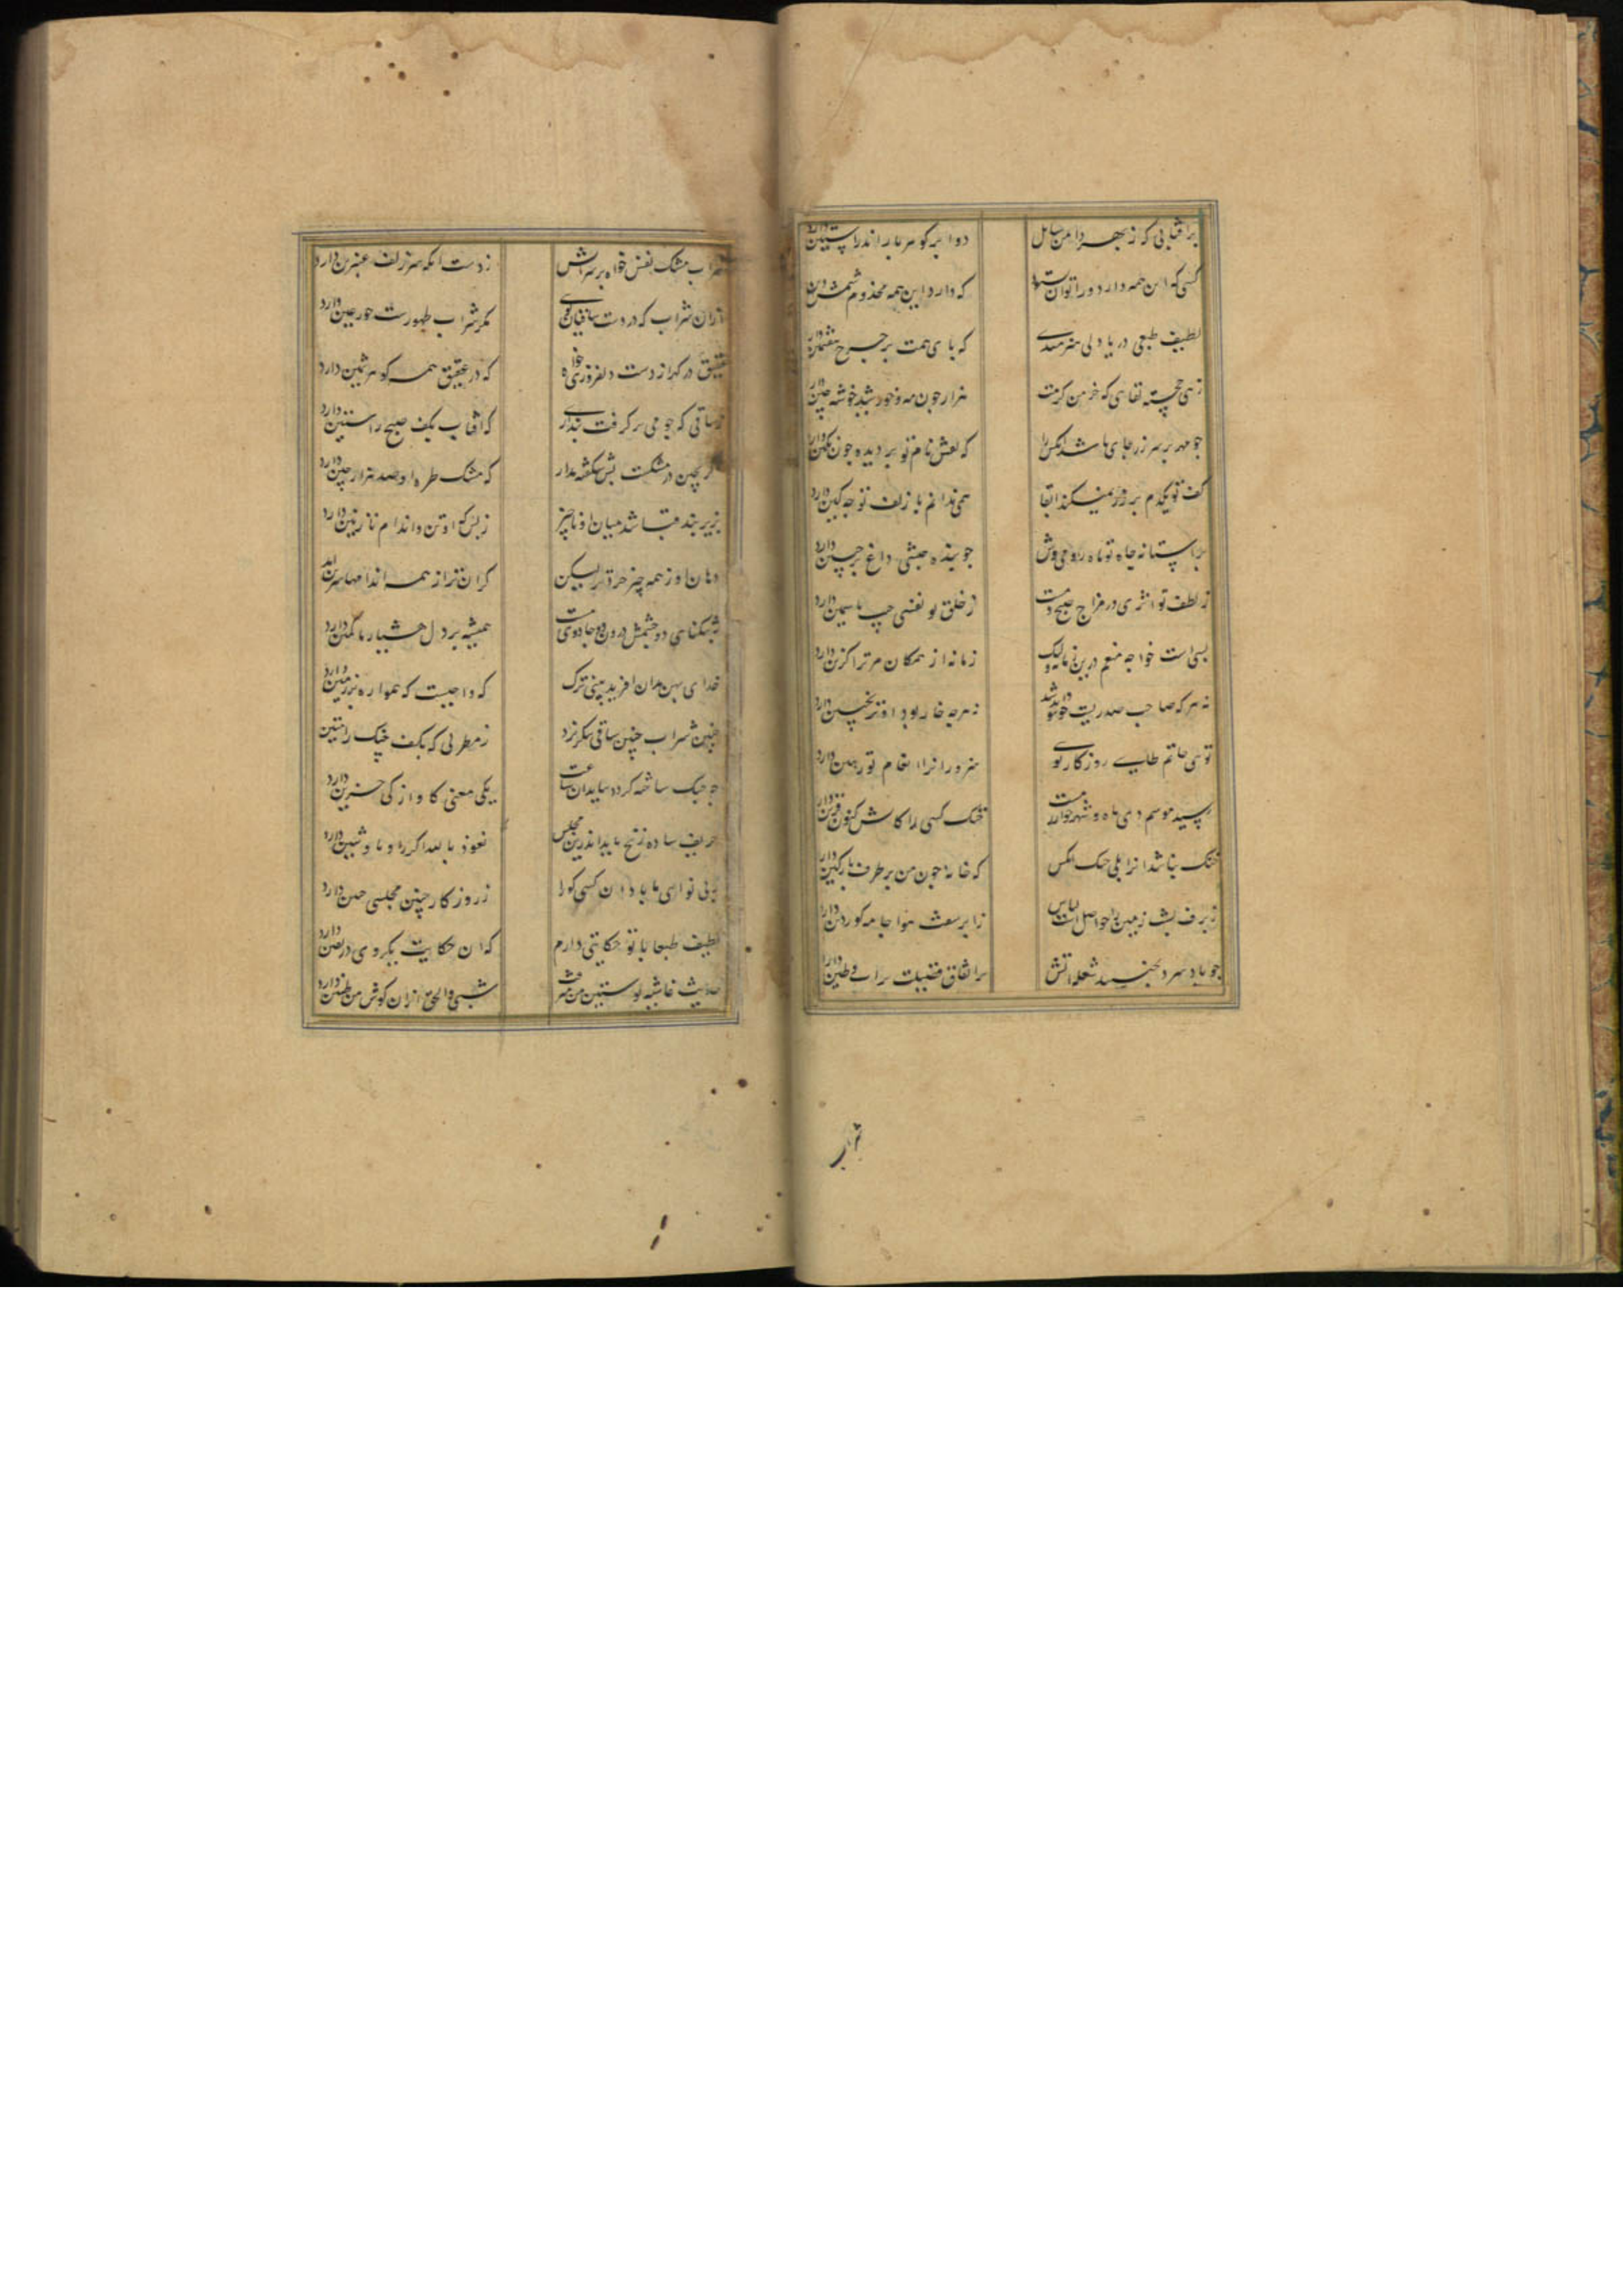 برافشانی که ز بهر دامن سایل دو ابر گوهر بار اندر آستین دارد
کسی که این همه دارد ورا توان ستود که دارد این همه مخدوم شمس دین دارد
لطیف طبعی دریا دلی هنرمندی که پای همت بر چرخ هفتمین دارد
زهی خجسته لقایی که خرمن کرمت هزار چون مه و خورشید خوشه چین دارد
چو مهر بر سر زر جای باشد آنکس را که نقش نام تو بر دیده چون نگین دارد
کف تو یکدم بر زر نمیکند ابقا همی ندانم با زلف تو چه کین دارد
بر آستانه جاه تو ماه رومی وش چو بنده حبشی داغ بر جبین دارد
ز لطف تو اثری در مزاج صبح دمست ز خلق تو نفسی جیب یاسمین دارد
بسی است خواجه منعم درین زمانه ولیک زمانه از همگان مر ترا گزین دارد
نه هر که صاحب صدریست خود تواند شد نه هر چه خار بود او ترنجبین دارد
توئی حاتم طایی روزگار توی هنرورانرا انعام تو رهین دارد
رسید موسم دی ماه و شهر خنک کسی را کاتش کنون قرین دارد
خنک نباشد انرا بلی خنک انکس که خانه چون من بر طرف پارگین دارد
ز برف پشت زمین را حواصل است لباس ز ابر سقف هوا جامه گوردین دارد
چو باد سرد بجنبید شعله آتش بر اتفاق فضیلت برای وطین دارد
شراب
شراب مشک نفس خواه بر سرانش ز دست آنکه سر زلف عنبرین دارد
ازان شراب که در دست ساقیان گویی مگر شراب طهورست حور عین دارد
عقیق در گهر از دست دلفروزی خواه که در عقیق همه گوهر ثمین دارد
ز ساقی که چو می بر گرفت پنداری که آفتاب بکف صبح راستین دارد
گر بچین در مشکست بس شگفت مدار که مشک طره او صد هزار چین دارد
بزیر بند قبا شد میان او ناچیز ز بس که او تن و اندام نازنین دارد
دهان او ز همه چیز خردتر لیکن گران تر از همه اندامها سرین دارد
همیشه بر دل هشیار ما کمین دارد
خدای پهن بدان آفرید بینی ترک که واجبست که همواره بر زمین دارد
چنین شراب چنین ساقی شکر نزد ز مطربی که بکف چنگ رامتین
چو چنگ ساخته گردد بباید آن ساعت یکی مغنی کاواز کی حزین دارد
حریف ساده زنخ باید اندرین مجلس نعوذ بالله اگر راو باو شین دارد
به بی نوایی ما باد آن کسی کو را ز روزگار چنین مجلسی حزین دارد
لطیف طبعا با تو حکایتی دارم که آن حکایت یکروی در یقین دارد
حدیث غاشیه پوستین من شبی والحق ازان گوش من طنین دارد